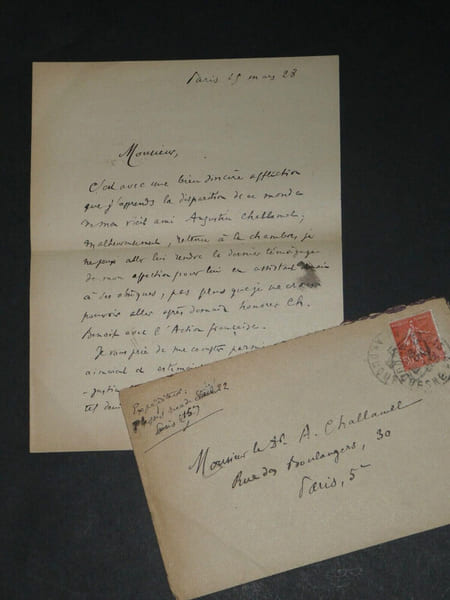 Paris 29 mars 28
Monsieur,
C'est avec une bien sincère affliction
que j'apprends la disparition de ce monde
de mon vieil ami Augustin Challamel;
malheureusement, retenu à la chambre, je
ne peux aller lui rendre le dernier témoignage
de mon affection pour lui en assistant demain
à ses obsèques, pas plus que je ne crois
pouvoir aller après demain honorer Ch.
Benoist avec l'Action française.
Je vous prie de me compter parmi
aimaient et estimaient
Expéditeur:
Paris (15e)
Monsieur le Dr A. Challamel
Rue des Boulangers, 30
Paris, 5e